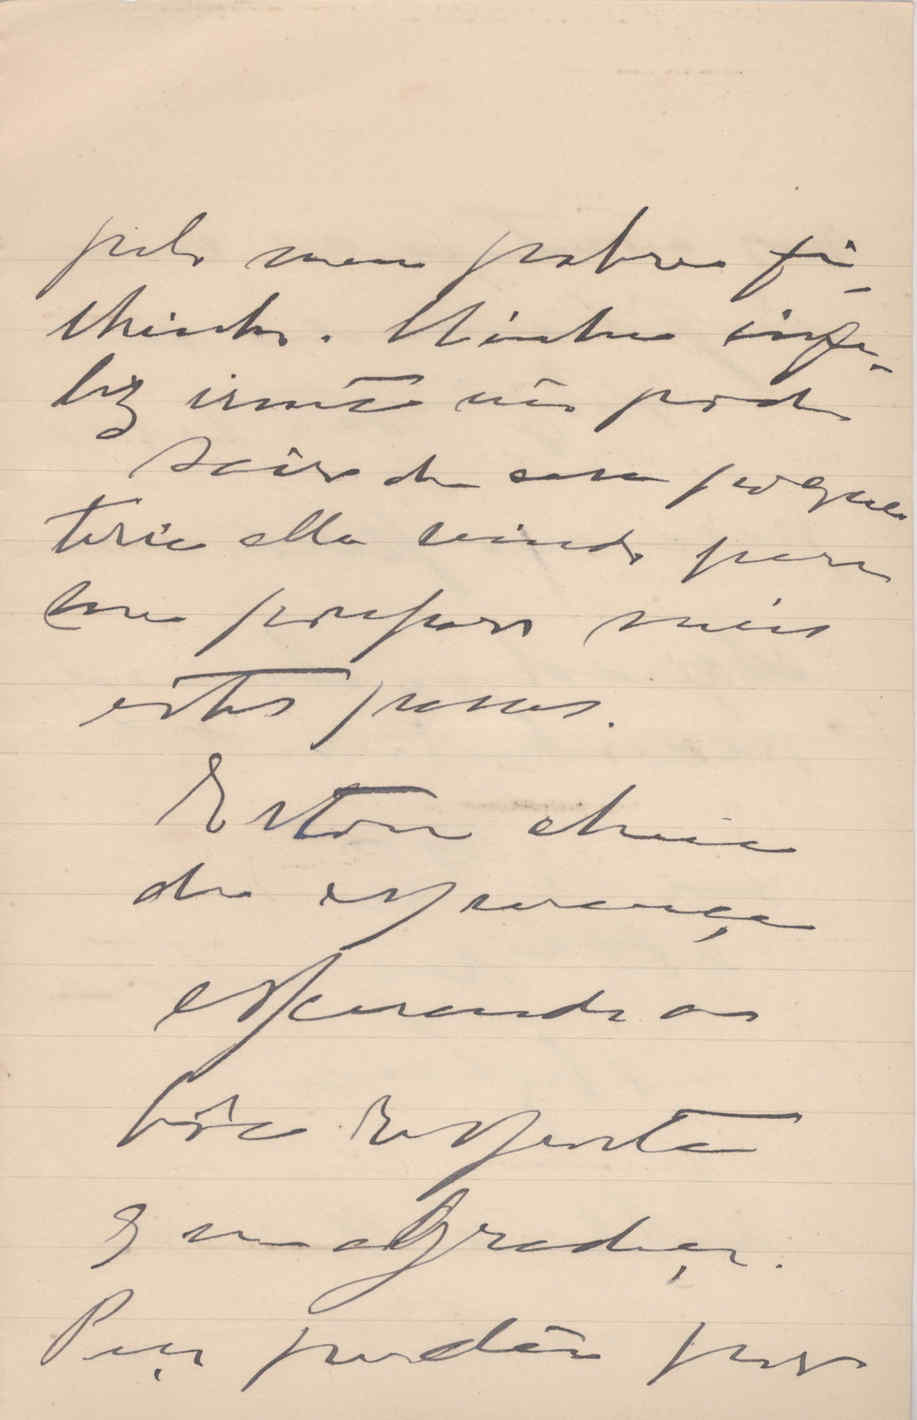 pelo meu pobre fi-
lhinho. Minha infe-
liz irmã não pode
sair de casa porque
teria ella vindo para
me poupar mais
estes passos.
Estou cheia
de esperança
esperando a
bôa resposta
q me agradeça.
Peço perdão por